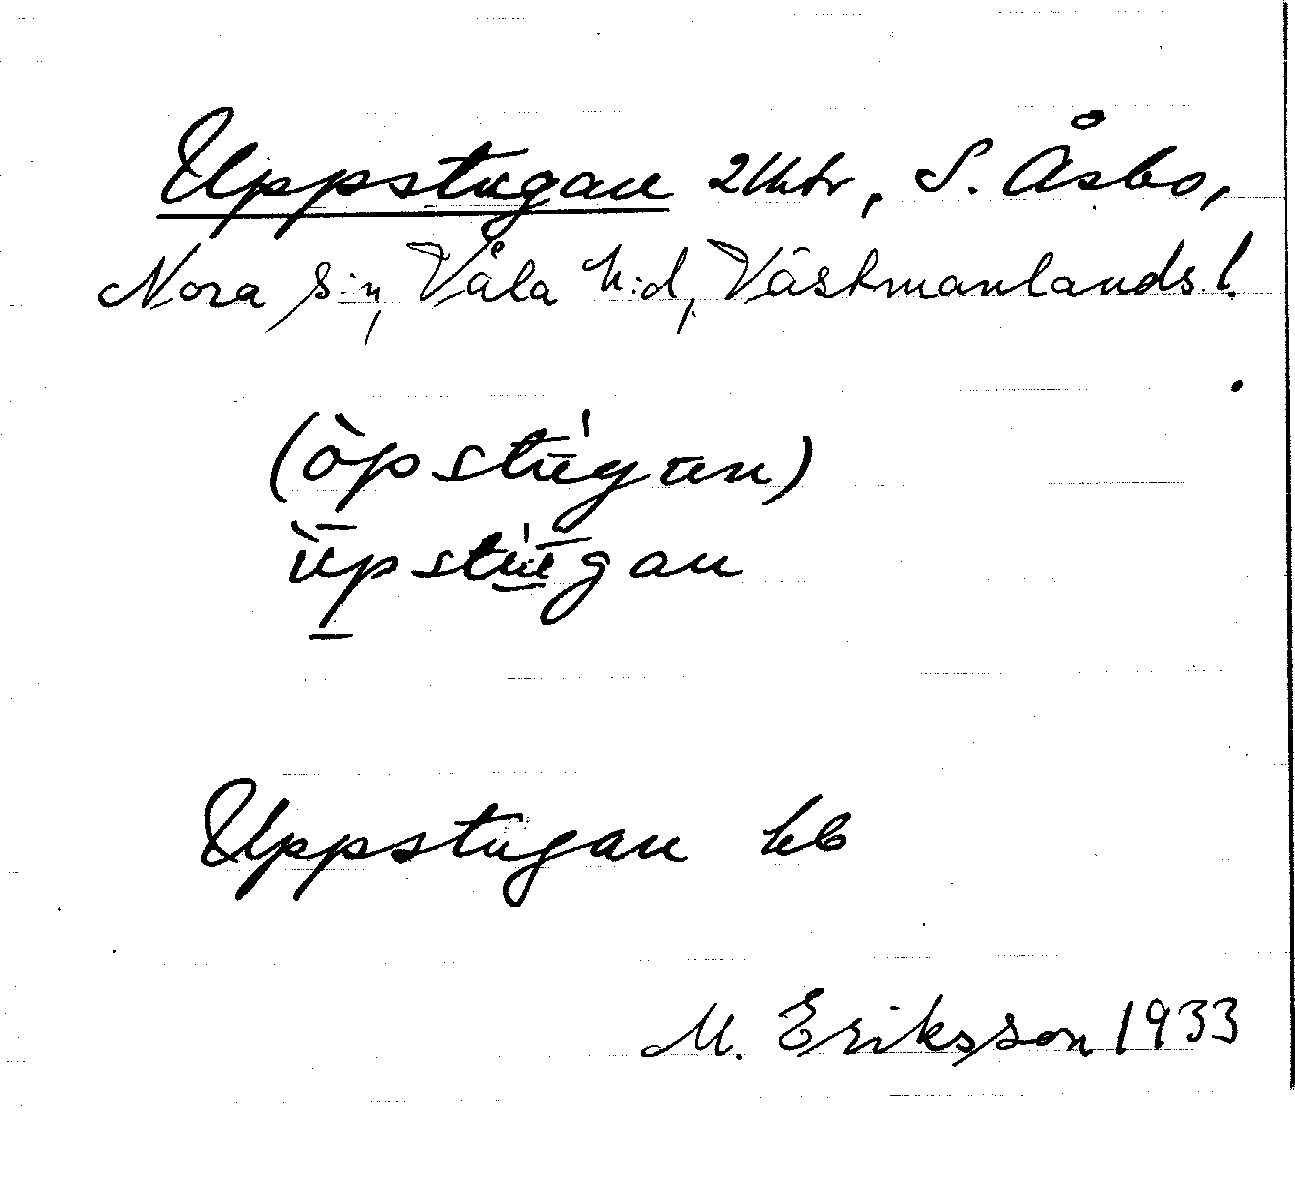 Uppstugan 2 Uhbr, S. Åsbo,
Nora s:n, Våla h:d, Västmanlands l.
(òpstú̄gan)
ùpstú̄gan
Uppstugan hb
M. Eriksson 1933